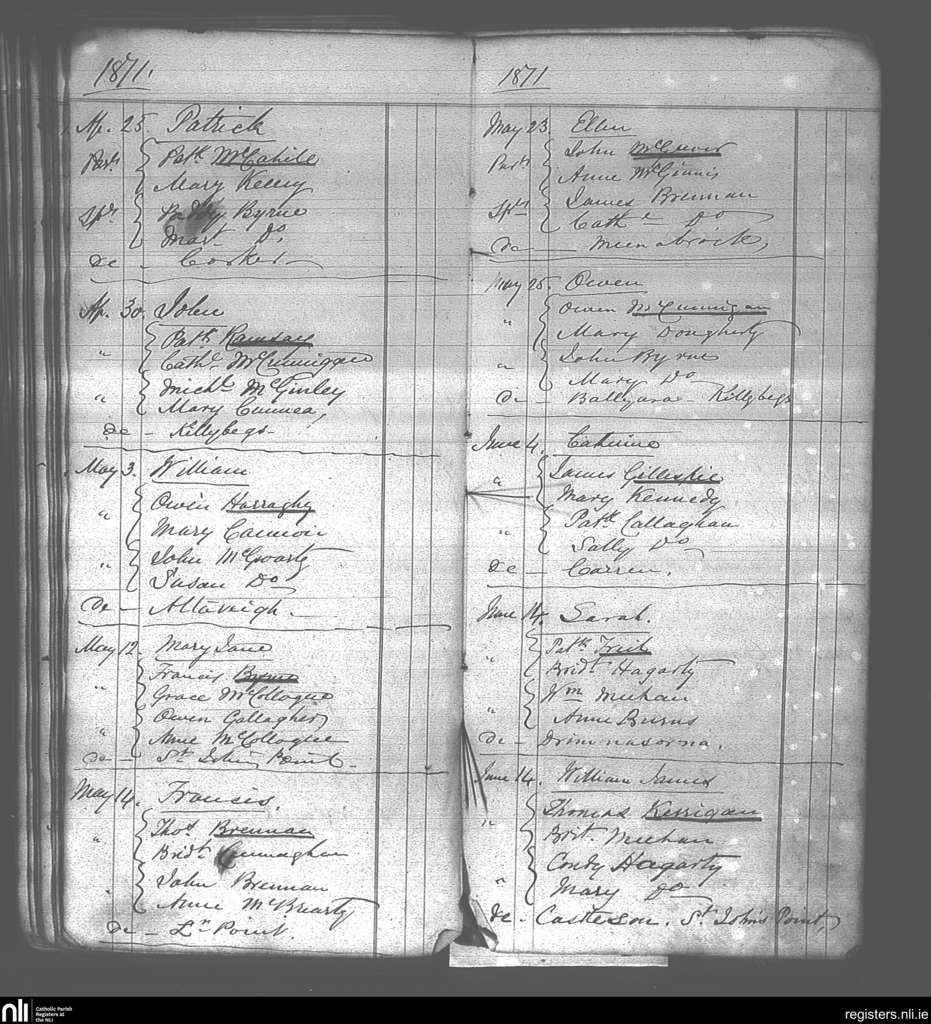 1871.
Ap. 25. Patrick
Parts Patk McCahill
Mary Keeny
Sprs Paddy Byrne
Mart Do
de - Corker
Ap. 30. John
" Patk Ramsay
Cathe McCunnigan
" Michl McGinley
Mary Cannea,
de - Killybegs -
May 3. William
" Owen Harraghy
Mary Cannon
" John McGroarty
Susan Do
de - Altaveigh -
May 12. Mary Jane
" Francis Byrne
Grace McCollogue
" Owen Gallagher
Anne McCollogue
de - St John's Point -
May 14. Francis.
" Thos Brennan
Bridt Cunnaghan
" John Brennan
Anne McBrearty
de - Ln Point.
1871
May 23. Ellen
Parts John McGrever
Anne McGinnis
Sprs James Brennan
Cathe Do
de - Meenabrock,
May 25. Owen
" Owen McCunnigan
Mary Dougherty
" John Byrne
Mary Do
de - Ballyara - Killybegs
June 4. Catherine
" James Gillespie
Mary Kennedy
" Patk Callaghan
Sally Do
de - Correen.
June 14. Sarah.
" Patk Friel
Bridt Hagarty
" Wm Meehan
Anne Burns
de - Drimnasorna.
June 14. William James
" Thomas Kerrigan
Brit. Meehan
" Condy Hagarty
Mary Do
de - Castleson. St John's Point,
nli Catholic Parish
Registers at
the NLI
registers.nli.ie